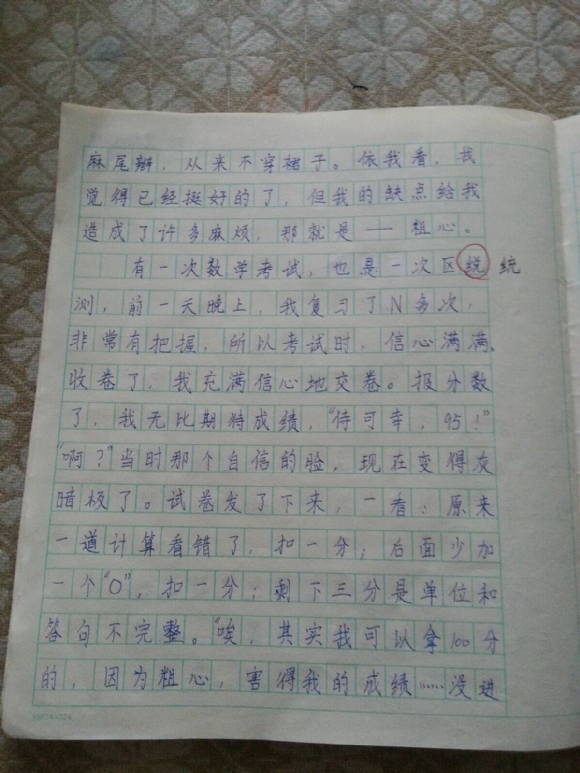 麻尾辫，从来不穿裙子。依我看，我
觉得已经挺好的了，但我的缺点给我
造成了许多麻烦，那就是——粗心。
有一次数学考试，也是一次区统 统
测，前一天晚上，我复习了N多次，
非常有把握，所以考试时，信心满满。
收卷了，我充满信心地交卷。报分数
了，我无比期待成绩，“侍可幸，95！”
“啊？”当时那个自信的脸，现在变得灰
暗极了。试卷发了下来，一看：原来
一道计算看错了，扣一分；后面少加
一个“0”，扣一分；剩下三分是单位和
答句不完整。“唉，其实我可以拿100分
的，因为粗心，害得我的成绩……没进